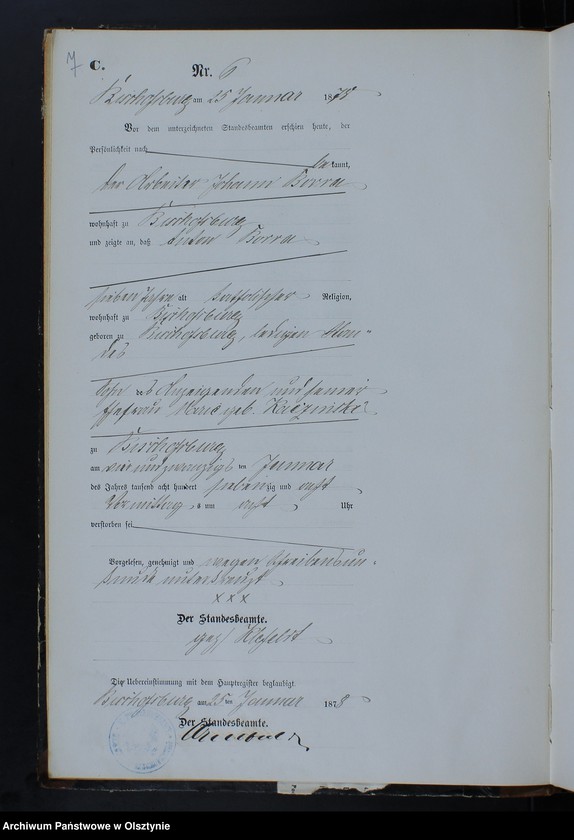 7
C.
Nr. 6
Bischofsburg am 25 Januar 1878
Vor dem unterzeichneten Standesbeamten erschien heute, der
Persönlichkeit nach
bekannt,
der Arbeiter Johann
wohnhaft zu Bischofsburg
und zeigte an, daß Anton
sieben Jahre alt katholischer Religion,
wohnhaft zu Bischofsburg
geboren zu Bischofsburg, ledigen Stan-
des
Sohn des Anzeigenden und seiner
Ehefrau geb.
zu Bischofsburg
am vierundzwanzigsten Januar
des Jahres tausend acht hundert siebenzig und acht
Vormittags um acht Uhr
verstorben sei
Vorgelesen, genehmigt und wegen Schreibensun-
kunde unterkreuzt
x x x
Der Standesbeamte.
gez/
Die Uebereinstimmung mit dem Hauptregister beglaubigt.
Bischofsburg am 25 ten Januar 1878
Der Standesbeamte.
Archiwum Państwowe w Olsztynie